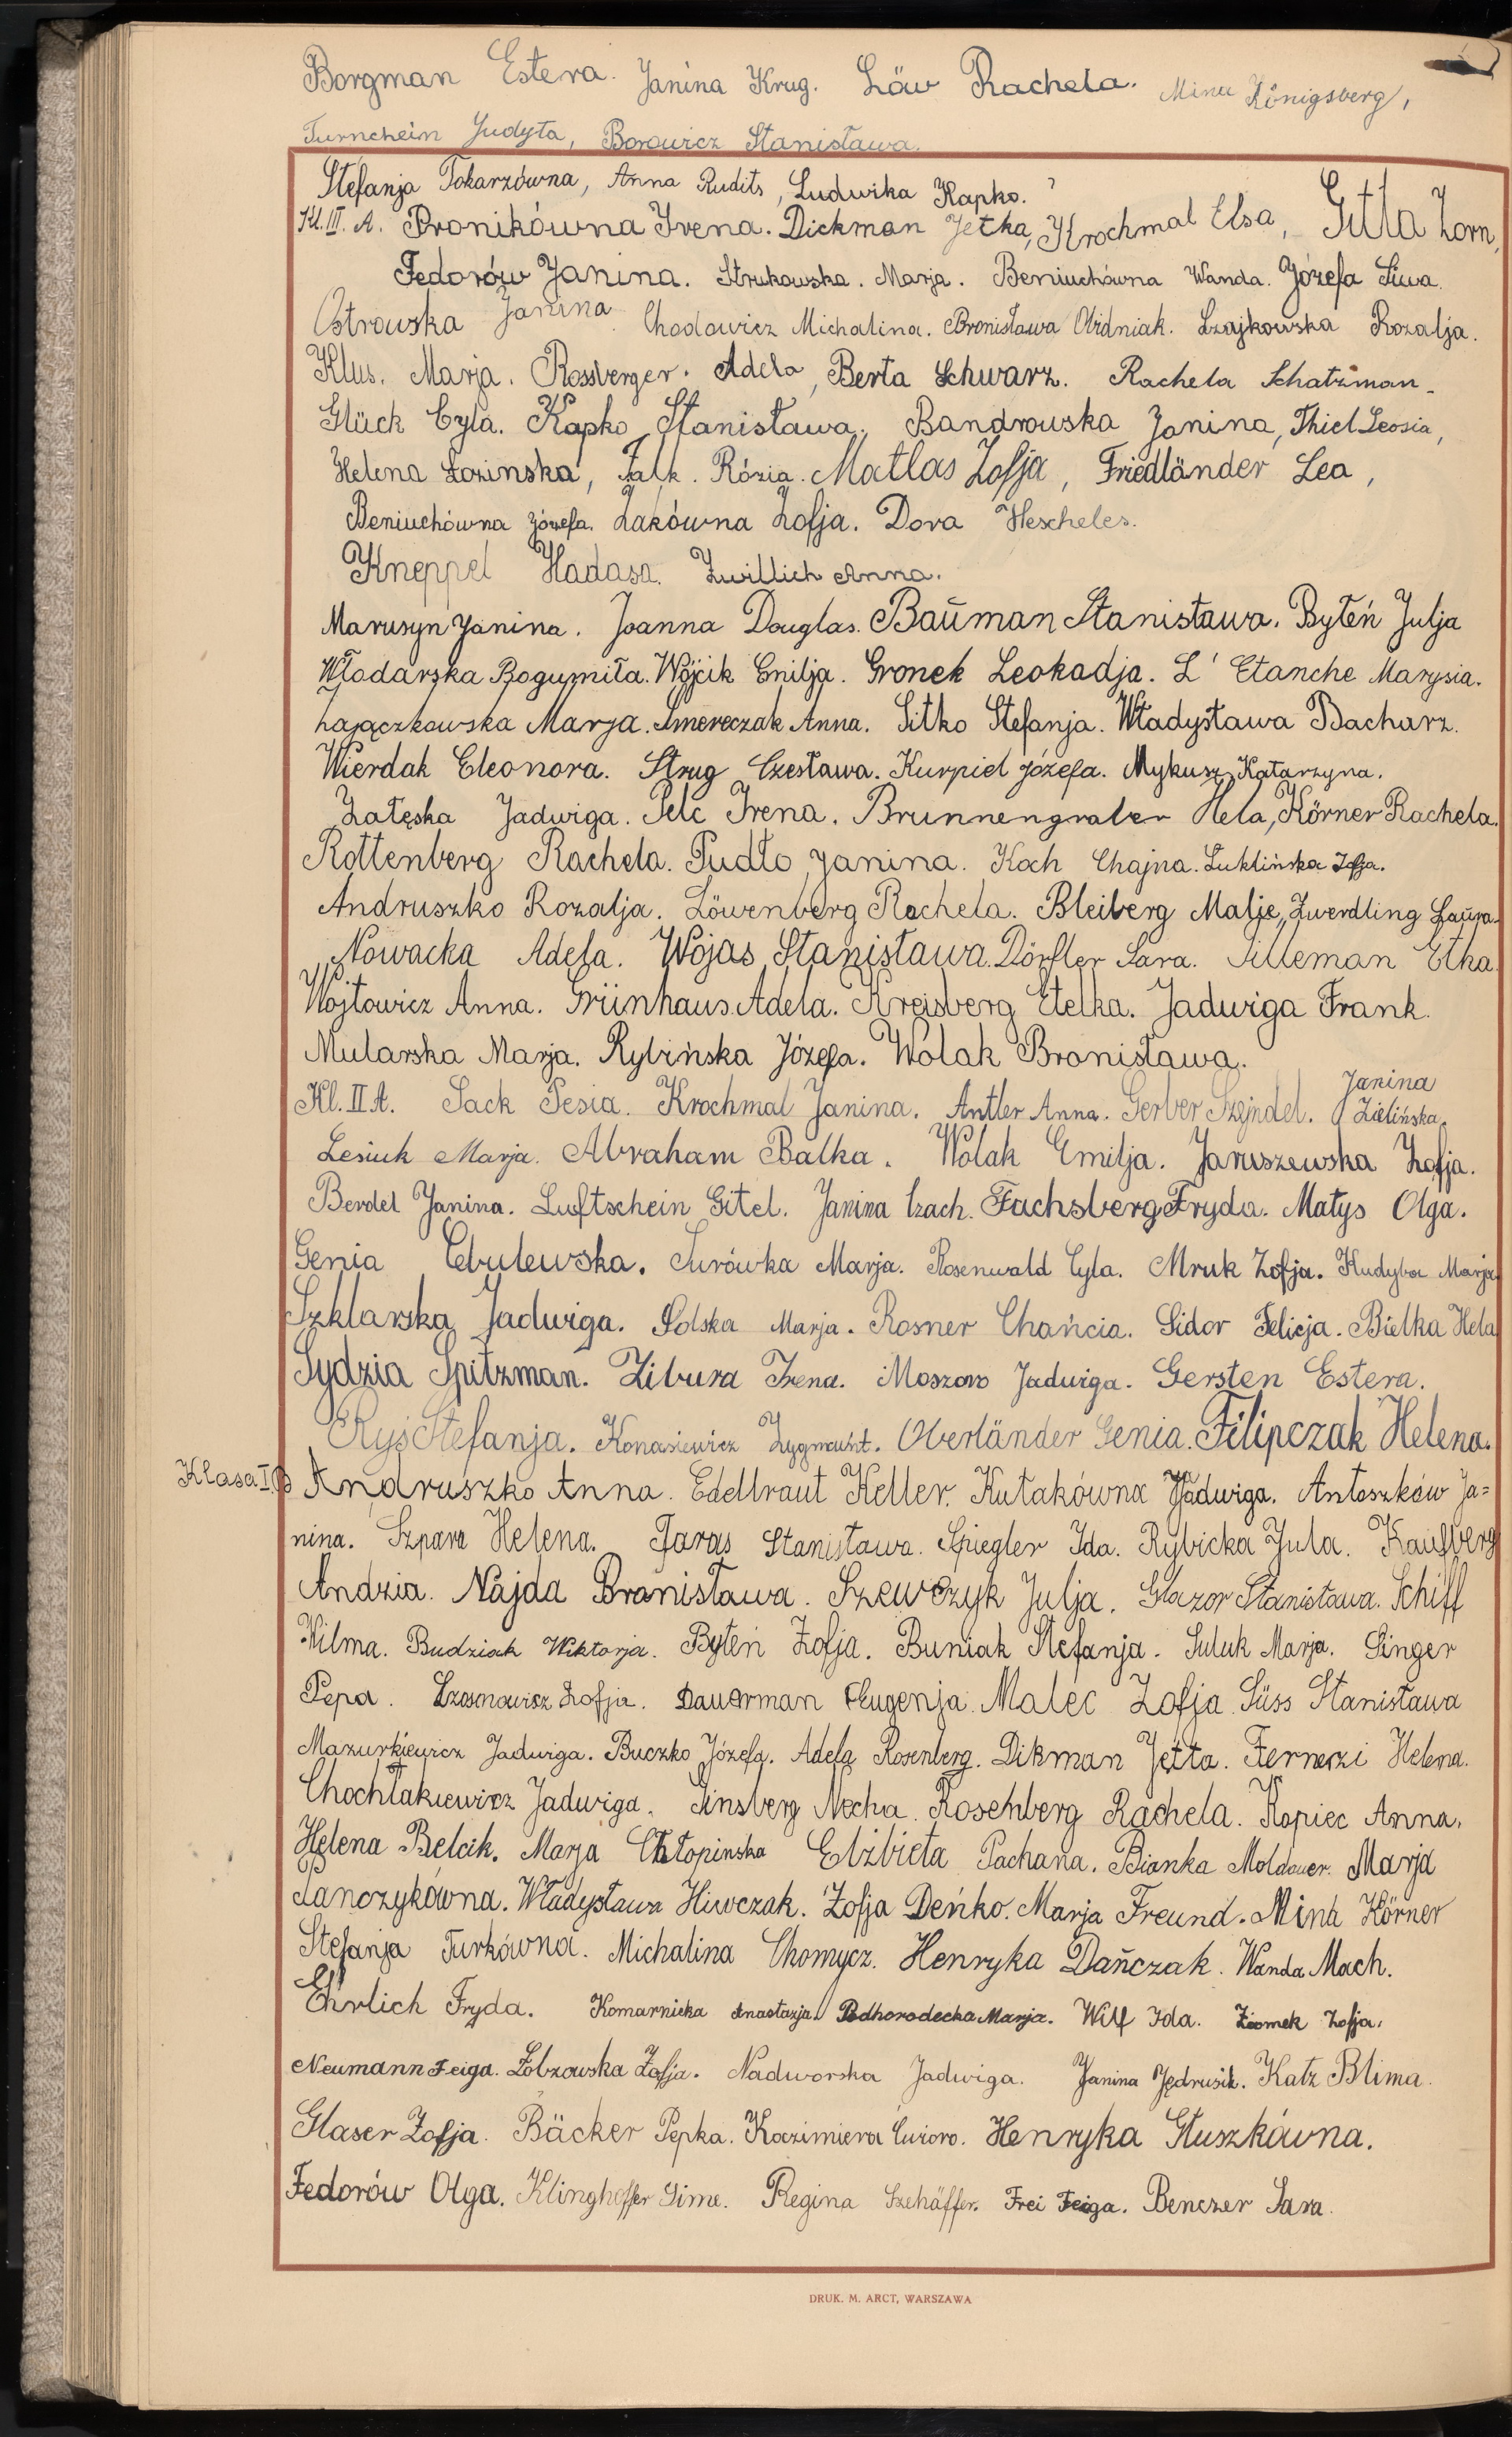 Borgman Estera. Janina Krug. Löw Rachela. Mina Königsberg,
Turnchein Judyta, Borowicz Stanisława.
Stefanja Tokarzówna, Anna Rudits, Ludwika Kapko.
Kl. III. A. Pronikówna Irena. Dickman Jetka, Krochmal Elsa, Gitla Zorn,
Fedorów Janina. Strukowska. Marja. Beniuchówna Wanda. Józefa Siwa.
Ostrowska Janina Chodowicz Michalina. Bronisława Olidniak. Czajkowska Rozalja.
Klus. Marja. Rossberger. Adela, Berta Schwarz. Rachela Schatzman.
Glück Cyla. Kapko Stanisława. Bandrowska Janina, Thiel Leosia,
Helena Łozinska, Falk. Rózia. Matlas Zofja, Friedländer Lea,
Beniuchówna Józefa. Żakówna Zofja. Dora Hescheles.
Kneppel Hadasa. Zwillich Anna.
Marusyn Janina. Joanna Douglas. Baŭman Stanisława. Byteń Julja
Włodarska Bogumiła. Wójcik Emilja. Gronek Leokadja. L' Etanche Marysia.
Zajączkowska Marja. Smereczak Anna. Sitko Stefanja. Władysława Bacharz.
Wierdak Eleonora. Strug Czesława. Kurpiel Józefa. Mykusz Katarzyna.
Załęska Jadwiga. Pelc Irena. Brunnengraber Hela, Körner Rachela.
Rottenberg Rachela. Pudło Janina. Koch Chajna. Luklińska Zofja.
Andruszko Rozalja. Löwenberg Rachela. Bleiberg Malje, Zwerdling Laŭra.
Nowacka Adela. Wojas Stanisława. Dörfler Sara. Silleman Etka.
Wojtowicz Anna. Grünhaus Adela. Kreisberg Etelka. Jadwiga Frank.
Mularska Marja. Rybińska Józefa. Wolak Bronisława.
Kl. II A. Sack Pesia. Krochmal Janina. Antler Anna. Gerber Szejndel. Janina Zielińska.
Lesiuk Marja. Abraham Balka. Wolak Emilja. Jaruszewska Zofja.
Berdel Janina. Luftschein Gitel. Janina Czach. Fachsberg Fryda. Matys Olga.
Genia Cebulewska. Surówka Marja. Rosenwald Cyla. Mruk Zofja. Kudyba Marja.
Szklarska Jadwiga. Solska Marja. Rosner Chańcia. Sidor Felicja. Bielka Hela
Sydzia Spitzman. Zibura Irena. Moszoro Jadwiga. Gersten Estera.
Ryś Stefanja. Konasiewicz Zygmunt. Oberländer Genia. Filipczak Helena.
Klasa I B Andruszko Anna. Edeltraut Keller. Kutakówna Jadwiga. Antoszków Ja=
nina. Szpara Helena. Faras Stanisława. Spiegler Ida. Rybicka Jula. Kaufberg
Andzia. Najda Bronisława. Szewczyk Julja. Glazor Stanisława. Schiff
Wilma. Budziak Wiktorja. Byteń Zofja. Buniak Stefanja. Suluk Marja. Singer
Pepa. Czosnowicz Zofja. Dauerman Eugenja. Malec Zofja. Süss Stanisława
Mazurkiewicz Jadwiga. Buczko Józefa. Adela Rosenberg. Dikman Jetta. Fernezi Helena.
Chochłakiewicz Jadwiga. Ginsberg Necha. Rosenberg Rachela. Kopiec Anna.
Helena Belcik. Marja Chłopinska Elżbieta Pachana. Bianka Moldauer. Marja
Panczykówna. Władysława Hiwczak. Zofja Deńko. Marja Freund. Mina Körner
Stefanja Turkówna. Michalina Chomycz. Henryka Dańczak. Wanda Mach.
Ehrlich Fryda. Komarnicka Anastazja. Podhorodecka Marja. Wilf Ida. Ziomek Zofja.
Neumann Feiga. Łobzowska Zofja. Nadworska Jadwiga. Janina Jędrusik. Katz Blima.
Glaser Zofja. Bäcker Pepka. Kazimiera Cużoro. Henryka Głuszkówna.
Fedorów Olga. Klinghoffer Sime. Regina Szehäffer. Frei Feiga. Benczer Sara.
DRUK. M. ARCT, WARSZAWA